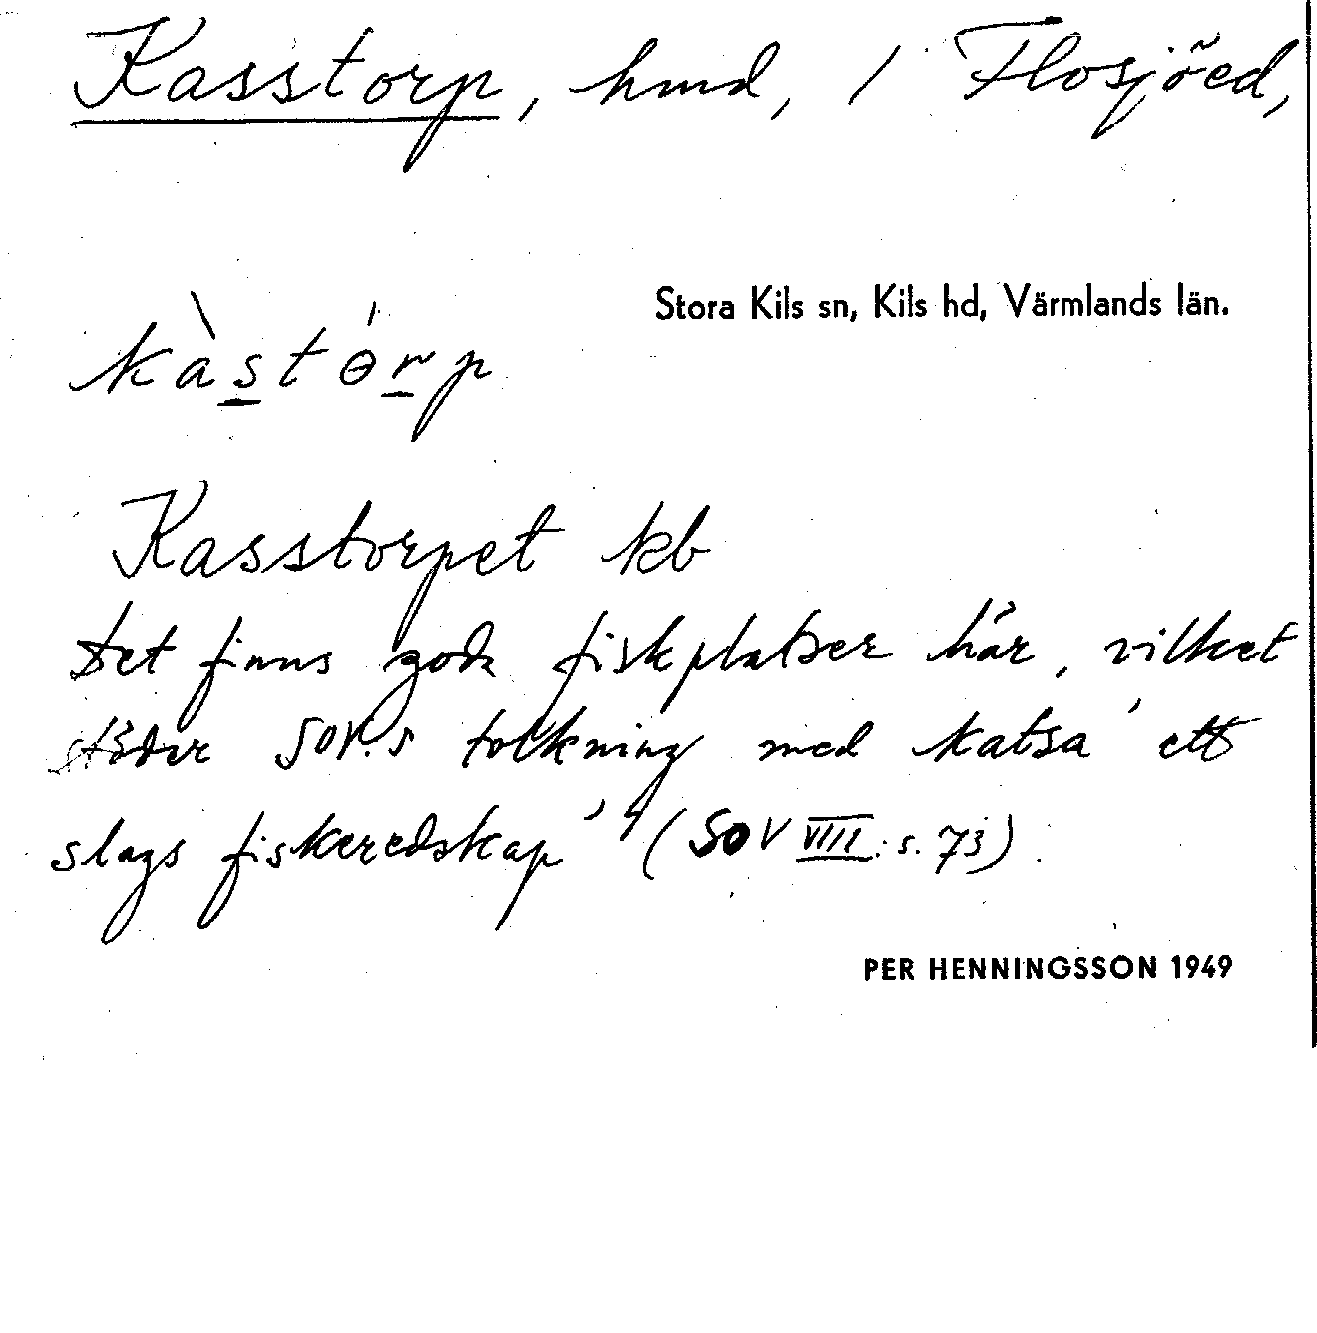 Kasstorp, hmd, / Flosjöed,
Stora Kils sn, Kils hd, Värmlands län.
kàstórp
Kasstorpet kb
Det finns goda fiskplatser här, vilket
stöder SOV.s tolkning med katsa 'ett
slags fiskeredskap' (SOV VIII: s. 73)
PER HENNINGSSON 1949